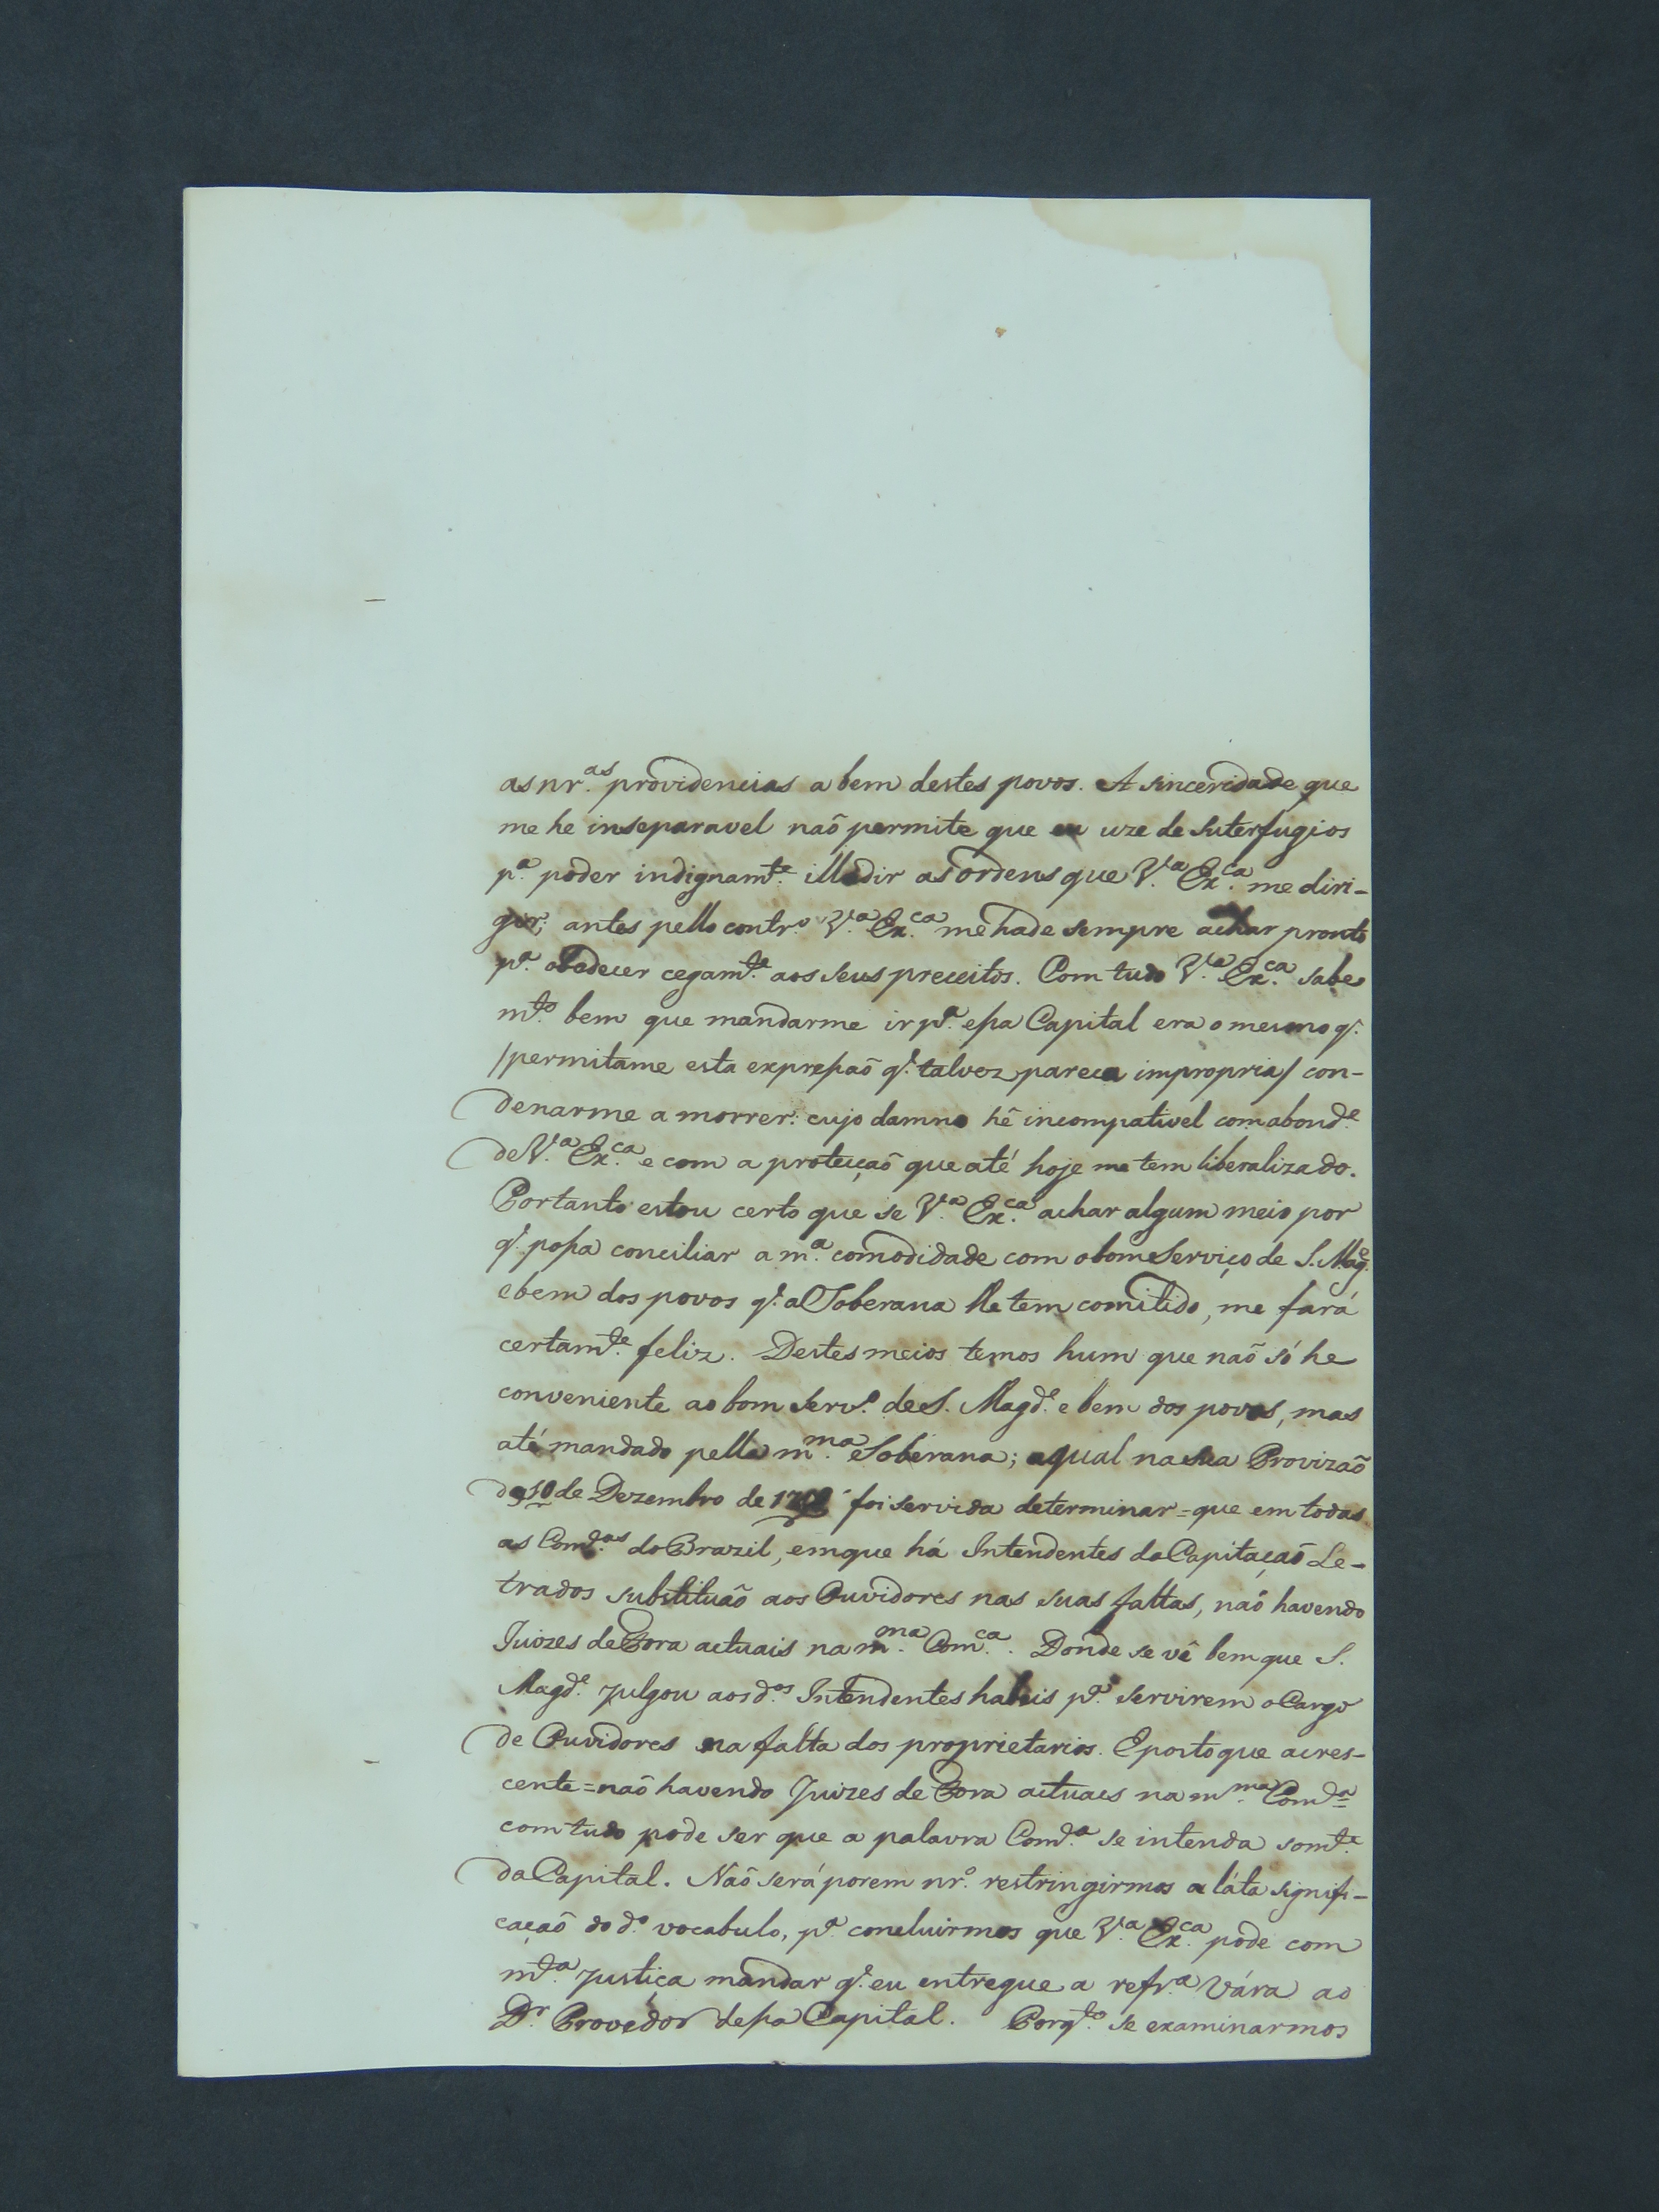 as nr.as providencias a bem destes povos. A sinceridade que
me he inseparavel naõ permite que eu uze de suterfugios
p.a poder indignam.te illudir as ordens que V.a Ex.ca me diri-
gir; antes pello contr.o V.a Ex.ca mehade sempre achar pronto
p.a obedecer cegam.te aos seus preceitos. Com tudo V.a Ex.ca sabe
m.to bem que mandarme ir p.a essa Capital era o mesmo q.
/permitame esta expressaõ q. talvez pareca impropria/ con-
denarme a morrer: cujo damno hê incompativel comabond.e
de V.a Ex.ca e com a protecçaõ que até hoje me tem liberalizado.
Portanto estou certo que se V.a Ex.ca achar algum meio por
q. possa conciliar a m.a comodidade com obom Serviço de S. Mag.e
ebem dos povos q. a Soberana lhe tem comitido, me fará
certam.te feliz. Destes meios temos hum que naõ só he
conveniente ao bom Serv.o de S. Magd.e e bem dos povos, mas
até mandado pella m.ma Soberana; aqual na sua Provizaõ
de 10 de Dezembro de foi servida determinar = que em todas
as Com.cas do Brazil, emque há Intendentes da Capitaçaõ Le-
trados substituaõ aos Ouvidores nas suas faltas, naõ havendo
Juizes de Fora actuais na m.ma Com.ca. Donde se vê bem que S.
Magd.e julgou aos d.os Intendentes habeis p.a servirem o Cargo
de Ouvidores na falta dos proprietarios. E posto que acres-
cente = naõ havendo Juizes de Fora actuaes na m.ma Com.ca =
com tudo pode ser que a palavra Com.ca se intenda som.te
da Capital. Naõ será porem nr.o restringirmos a láta signifi-
caçaõ do d.o vocabulo, p.a concluirmos que V.a Ex.ca pode com
m.ta justiça mandar q. eu entregue a refr.a Vára ao
D.r Provedor dessa Capital. Porq.to se examinarmos